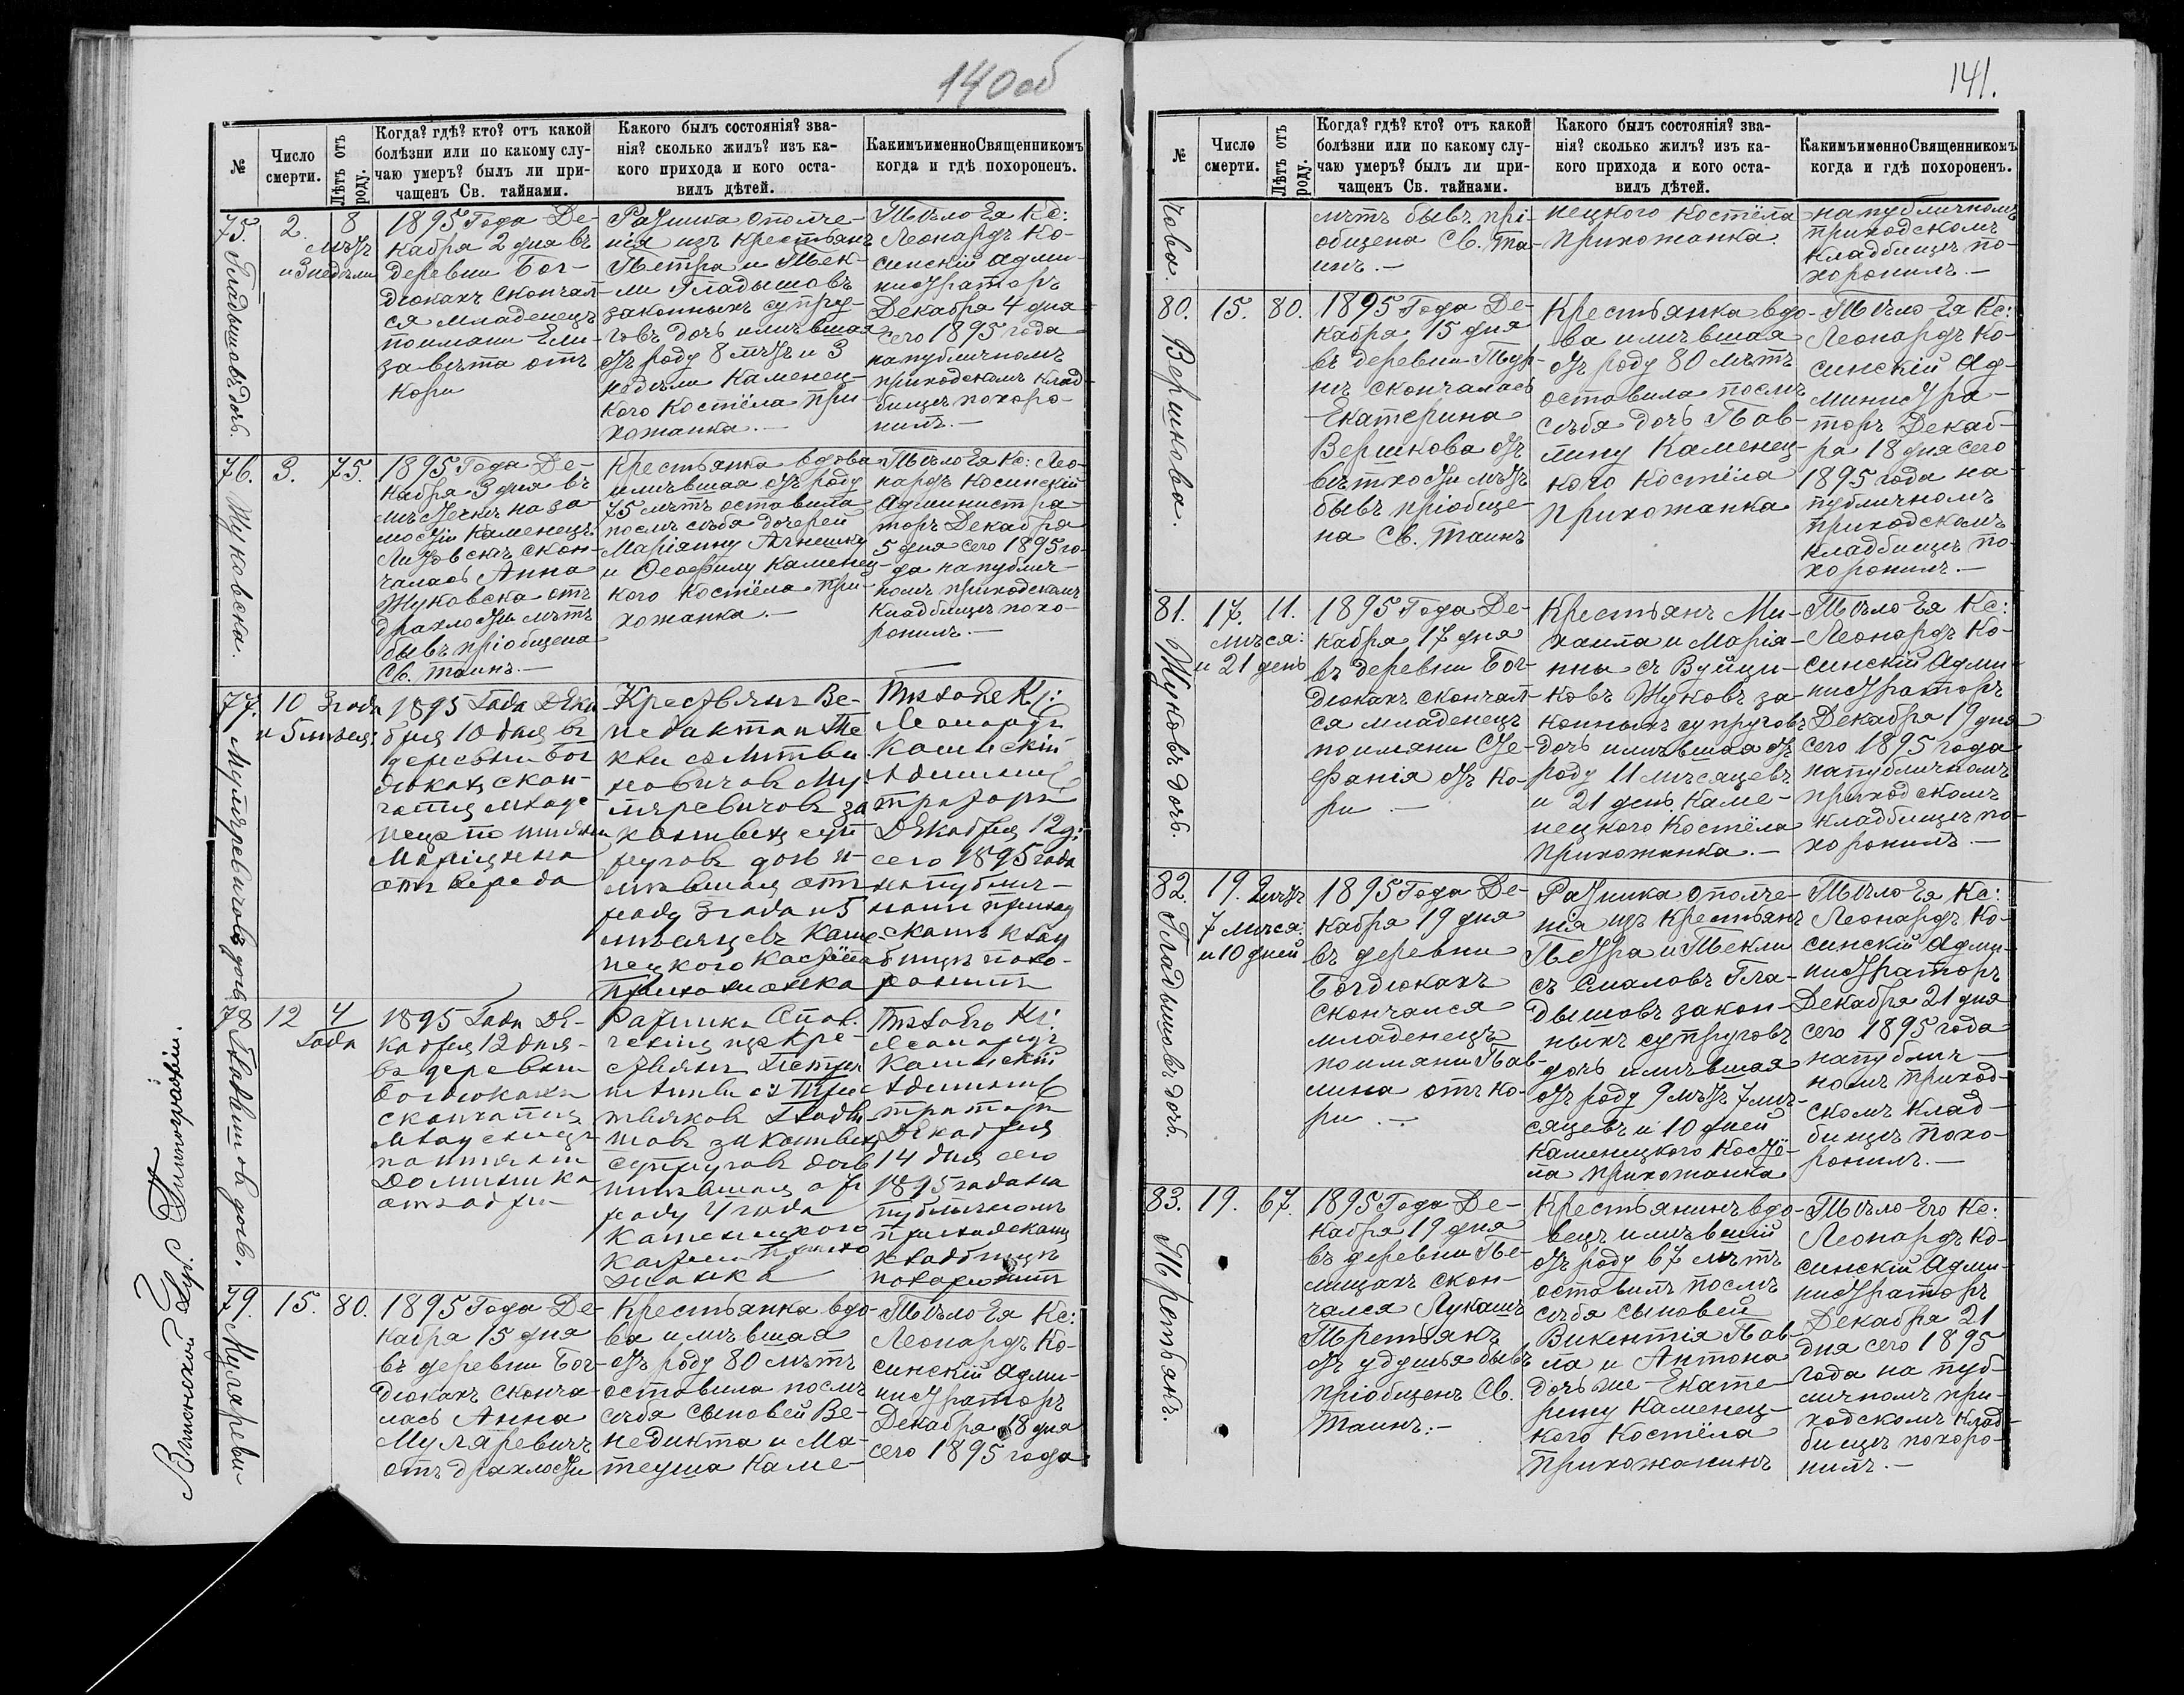 140 об
№
Число смерти.
Лѣтъ отъ роду.
Когда? гдѣ? кто? отъ какой
болѣзни или по какому слу-
чаю умеръ? былъ ли при-
чащенъ Св. тайнами.
Какого былъ состоянія? зва-
нія? сколько жилъ? изъ ка-
кого прихода и кого оста-
вилъ дѣтей.
Какимъ именно Священникомъ
когда и гдѣ похороненъ.
75.
Гладышовъ дочь.
2.
8
мѣсъ
и 3 недѣли
1895 Года Де-
кабря 2 дня въ
деревни Бог-
дюкахъ скончал-
ся младенецъ
поимяни Ели-
завѣта отъ
Кори
Ратника ополче-
нія изъ крестьянъ
Петра и Тек-
ли Гладышовъ
законныхъ супру-
говъ дочь имѣвшая
отъ роду 8 мѣсъ и 3
недѣли Каменец-
кого Костёла при-
хожанка. —
Тѣло Ея Кс:
Леонардъ Ко-
синскій Адми-
нистраторъ
Декабря 4 дня
сего 1895 года
на публичномъ
приходскомъ клад-
бищѣ похоро-
нилъ. —
76.
Жуковска.
3.
75.
1895 Года Де-
кабря 3 дня въ
мѣстечкѣ на за-
мостіи Каменецъ
Литовскъ скон-
чалась Анна
Жуковска отъ
драхлости лѣтъ
бывъ пріобщена
Св. таинъ. —
Крестьянка вдова
имѣвшая отъ роду
75 лѣтъ оставила
послѣ себя дочерей
Маріянну Агнешку
и Ѳеофилу Каменец-
кого Костёла при-
хожанка. —
Тѣло Ея Кс: Лео-
нардъ Косинскій
Администра-
торъ Декабря
5 дня сего 1895 го-
да на публич-
номъ приходскомъ
Кладбищѣ похо-
ронилъ. —
77.
Муляревичовъ дочь
10
3 года
и 5 мѣсяц:
1895 Года Дека-
бря 10 дня въ
деревни Бог-
дюкахъ скон-
чался младе-
нецъ по имяни
Маріянна
отъ вереда
Крестьянъ Ве-
недикта и Те-
кли съ Литви-
новичовъ Му-
ляревичовъ за-
конныхъ суп-
руговъ дочь и-
мѣвшая отъ
роду 3 года и 5
мѣсяцевъ Каме-
нецкого Костёла
прихожанка
Тѣло Ея Кс:
Леонардъ
Косинскій
Админис-
траторъ
Декабря 12 д:
сего 1895 года
на публич-
номъ приход-
скомъ клад-
бищѣ похо-
ронилъ
78
Гладышовъ дочь.
12
4
Года
1895 Года Де-
кабря 12 дня
въ деревни
Богдюкахъ
скончался
младенецъ
поимяни
Доминика
отъ одри
Ратника Опол-
ченія изъ Кре-
стьянъ Петра
и Анны съ Тре-
тьяковъ Глады-
шовъ законныхъ
супруговъ дочь
имѣвшая отъ
роду 4 года
Каменецкого
Костёла Прихо-
жанка
Тѣло Его Кс:
Леонардъ
Косинскій
Админис-
траторъ
Декабря
14 дня сего
1895 года на
публичномъ
приходскомъ
кладбищѣ
похоронилъ
79.
Муляреви-
15.
80.
1895 Года Де-
кабря 15 дня
въ деревни Бог-
дюкахъ сконча-
лась Анна
Муляревичъ
отъ драхлости
Крестьянка вдо-
ва имѣвшая
отъ роду 80 лѣтъ
оставила послѣ
себя сыновей Ве-
недикта и Ма-
теуша Каме-
Тѣло Ея Кс:
Леонардъ Ко-
синскій Адми-
нистраторъ
Декабря 18 дня
сего 1895 года
Виленской Губ. Типографіи.
141.
№
Число смерти.
Лѣтъ отъ роду.
Когда? гдѣ? кто? отъ какой
болѣзни или по какому слу-
чаю умеръ? былъ ли при-
чащенъ Св. тайнами.
Какого былъ состоянія? зва-
нія? сколько жилъ? изъ ка-
кого прихода и кого оста-
вилъ дѣтей.
Какимъ именно Священникомъ
когда и гдѣ похороненъ.
чова.
лѣтъ бывъ прі-
общена Св. Та-
инъ. —
нецкого Костёла
прихожанка.
на публичномъ
приходскомъ
кладбищѣ по-
хоронилъ. —
80.
Вершкова.
15.
80.
1895 Года Де-
кабря 15 дня
въ деревни Тур-
нѣ скончалась
Екатерина
Вершкова отъ
вѣтхости лѣтъ
бывъ пріобще-
на Св. Таинъ
Крестьянка вдо-
ва имѣвшая
отъ роду 80 лѣтъ
оставила послѣ
себя дочь Пав-
лину Каменец-
кого Костёла
прихожанка
Тѣло Ея Кс:
Леонардъ Ко-
синскій Ад-
министра-
торъ Декаб-
ря 18 дня сего
1895 года на
публичномъ
приходскомъ
кладбищѣ по-
хоронилъ. —
81.
Жуковъ дочь.
17.
11.
мѣся:
и 21 день
1895 Года Де-
кабря 17 дня
въ деревни Бог-
дюкахъ скончал-
ся младенецъ
поимяни Сте-
фанія отъ Ко-
ри —
Крестьянъ Ми-
хаила и Марія-
нны съ Вуйци-
ковъ Жуковъ за-
конныхъ супруговъ
дочь имѣвшая отъ
роду 11 мѣсяцевъ
и 21 день Каме-
нецкого Костёла
прихожанка. —
Тѣло Ея Кс:
Леонардъ Ко-
синскій Адми-
нистраторъ
Декабря 19 дня
сего 1895 года
на публичномъ
приходскомъ
кладбищѣ по-
хоронилъ. —
82.
Гладышовъ дочь.
19.
7 мѣся:
и 10 дней
1895 Года Де-
кабря 19 дня
въ деревни
Богдюкахъ
скончался
младенецъ
поимяни Пав-
лина отъ Ко-
ри. —
Ратника ополче-
нія изъ крестьянъ
Петра и Текли
съ Смаловъ Гла-
дышовъ закон-
ныхъ супруговъ
дочь имѣвшая
отъ роду 9 лѣтъ 7 мѣ-
сяцевъ и 10 дней
Каменецкого Костё-
ла прихожанка
Тѣло Ея Кс:
Леонардъ Ко-
синскій Адми-
нистраторъ
Декабря 21 дня
сего 1895 года
на публич-
номъ приход-
скомъ клад-
бищѣ похо-
ронилъ. —
83.
Третьякъ.
19.
67.
1895 Года Де-
кабря 19 дня
въ деревни Пе-
лищахъ скон-
чался Лукашъ
Третьякъ
отъ удушья бывъ
пріобщенъ Св.
Таинъ. —
Крестьянинъ вдо-
вецъ имѣвшій
отъ роду 67 лѣтъ
оставилъ послѣ
себя сыновей
Викентія Пав-
ла и Антона
дочь же Екате-
рину Каменец-
кого Костёла
Прихожанинъ
Тѣло Его Кс:
Леонардъ Ко-
синскій Адми-
нистраторъ
Декабря 21
дня сего 1895
года на пуб-
личномъ при-
ходскомъ клад-
бищѣ похоро-
нилъ. —